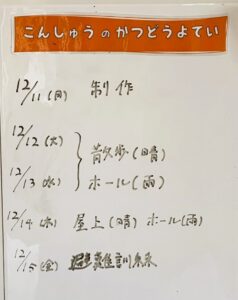 こんしゅうのかつどうよてい
12/11(月) 制作
12/12(火)
散歩(晴)
12/13(水) ホール(雨)
12/14(木) 屋上(晴) ホール(雨)
12/15(金) 避難訓練